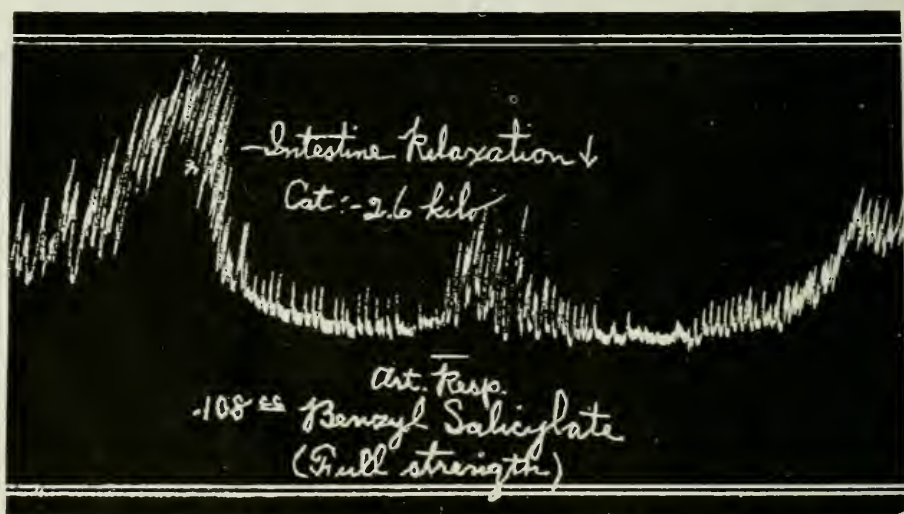 -Intestine Relaxation ↓
Cat:-2.6 kilo
Art. Resp.
.108 cc Benzyl Salicylate
(Full strength)